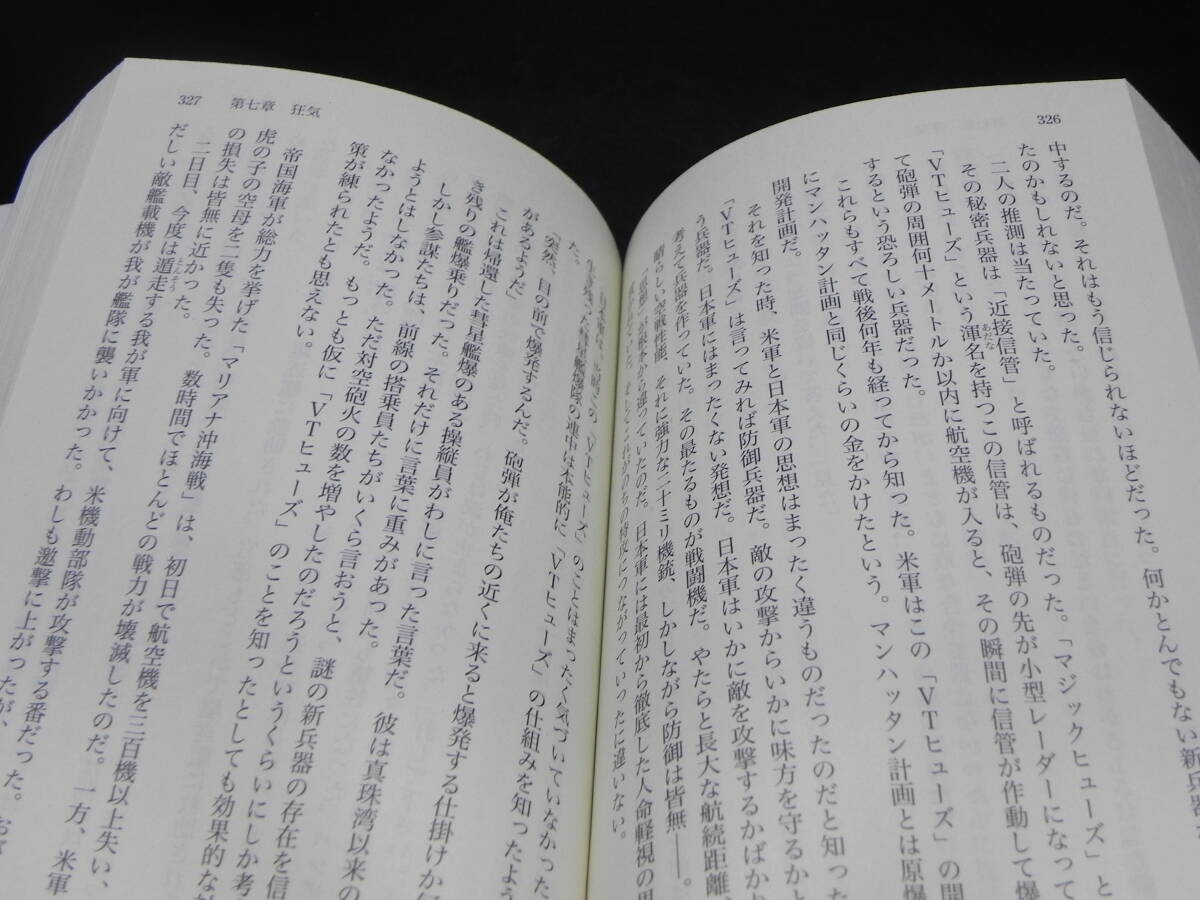 326
中するのだ。それはもう信じられないほどだった。何かとんでもない新兵器
たのかもしれないと思った。
二人の推測は当たっていた。
その秘密兵器は「近接信管」と呼ばれるものだった。「マジックヒューズ」と
「VTヒューズ」という渾名を持つこの信管は、砲弾の先が小型レーダーになって
て砲弾の周囲何十メートルか以内に航空機が入ると、その瞬間に信管が作動して爆
するという恐ろしい兵器だった。
これらもすべて戦後何年も経ってから知った。米軍はこの「VTヒューズ」の開
にマンハッタン計画と同じくらいの金をかけたという。マンハッタン計画とは原爆
開発計画だ。
それを知った時、米軍と日本軍の思想はまったく違うものだったのだと知った
「VTヒューズ」は言ってみれば防御兵器だ。敵の攻撃からいかに味方を守るかと
う兵器だ。日本軍にはまったくない発想だ。日本軍はいかに敵を攻撃するかばか
考えて兵器を作っていた。その最たるものが戦闘機だ。やたらと長大な航続距離、
晴らしい空戦性能、それに強力な二十ミリ機銃、しかしながら防御は皆無――。
「思想」が根本から違っていたのだ。日本軍には最初から徹底した人命軽視の思
そしてこれがのちの特攻につながっていったに違いない。
327 第七章 狂気
日本軍は、当時この「VTヒューズ」のことはまったく気づいていなかった
た。
生き残った彗星艦爆隊の連中は本能的に「VTヒューズ」の仕組みを知ったよう
「突然、目の前で爆発するんだ。砲弾が俺たちの近くに来ると爆発する仕掛けか何
があるようだ」
これは帰還した彗星艦爆のある操縦員がわしに言った言葉だ。彼は真珠湾以来の
き残りの艦爆乗りだった。それだけに言葉に重みがあった。
しかし参謀たちは、前線の搭乗員たちがいくら言おうと、謎の新兵器の存在を信
ようとはしなかった。ただ対空砲火の数を増やしたのだろうというくらいにしか考
なかったようだ。もっとも仮に「VTヒューズ」のことを知ったとしても効果的な対
策が練られたとも思えない。
帝国海軍が総力を挙げた「マリアナ沖海戦」は、初日で航空機を三百機以上失い、
虎の子の空母を二隻も失った。数時間でほとんどの戦力が壊滅したのだ。一方、米軍
の損失は皆無に近かった。
二日目、今度は遁走する我が軍に向けて、米機動部隊が攻撃する番だった。お
だしい敵艦載機が我が艦隊に襲いかかった。わしも邀撃に上がったが、